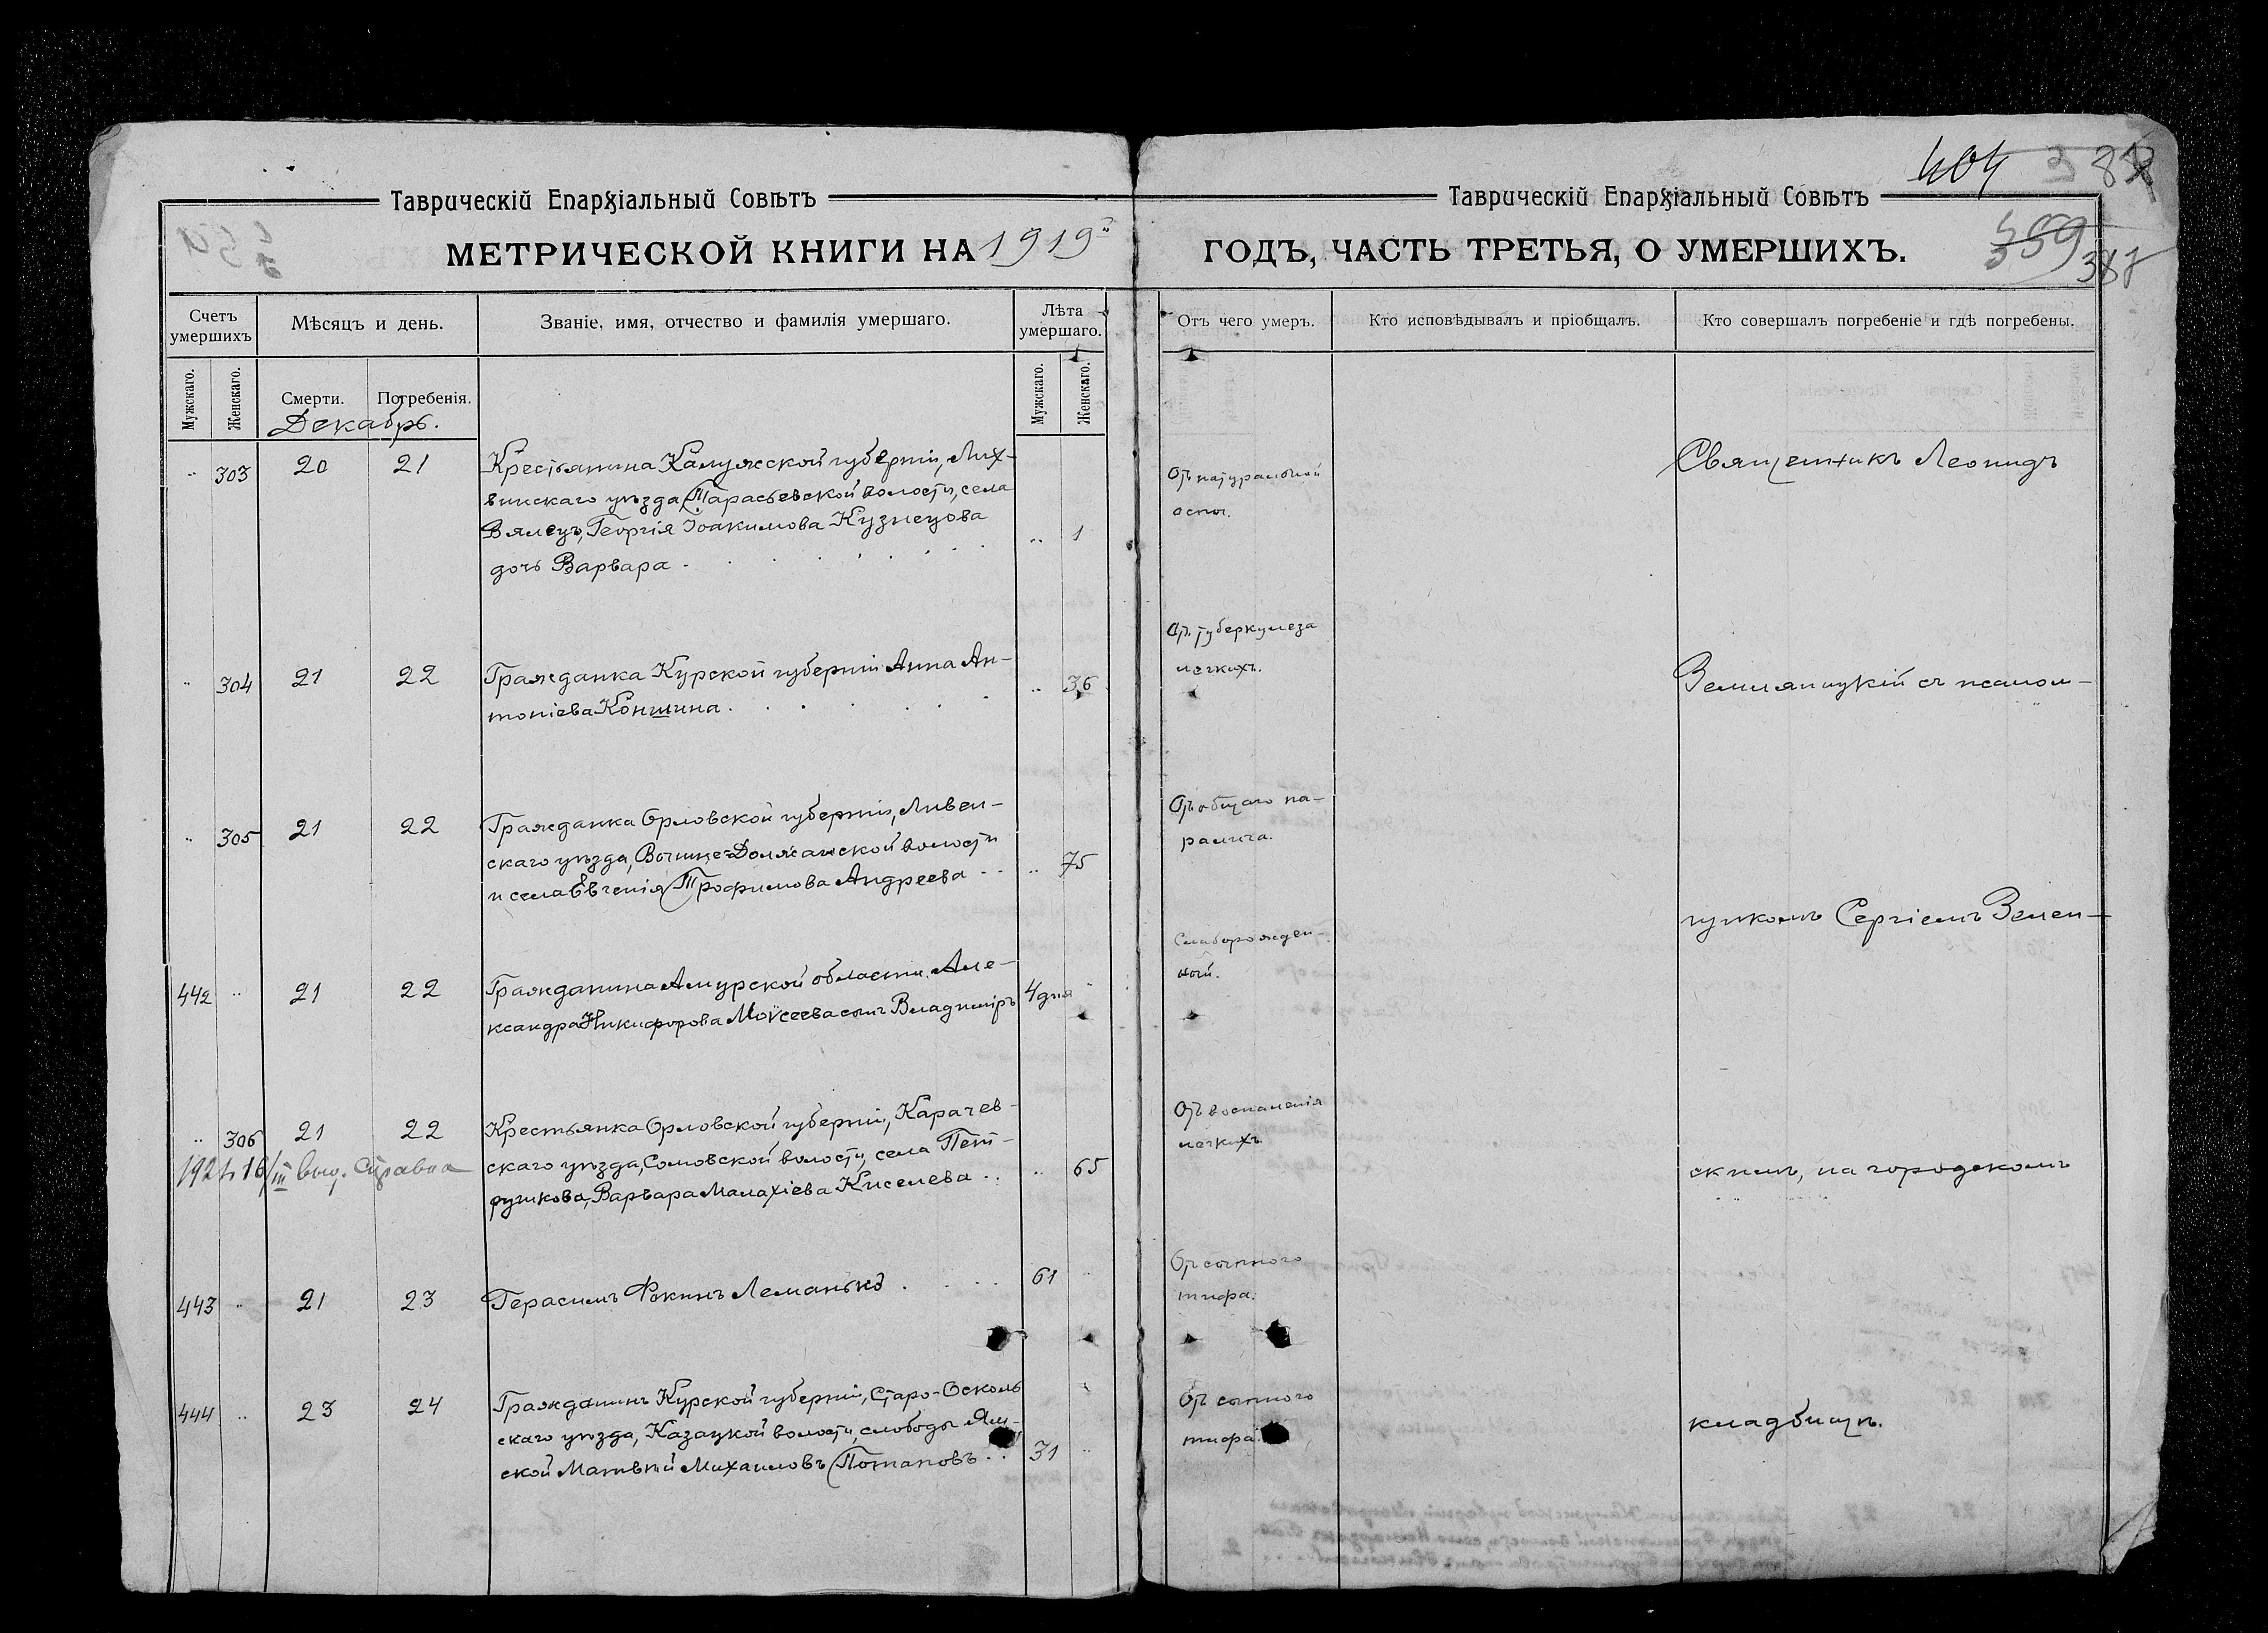 404
Таврическій Епархіальный Совѣтъ
Таврическій Епархіальный Совѣтъ
МЕТРИЧЕСКОЙ КНИГИ НА 1919й
ГОДЪ, ЧАСТЬ ТРЕТЬЯ, О УМЕРШИХЪ.
387
Счетъ умершихъ
Мѣсяцъ и день.
Званіе, имя, отчество и фамилія умершаго.
Лѣта умершаго.
Отъ чего умеръ.
Кто исповѣдывалъ и пріобщалъ.
Кто совершалъ погребеніе и гдѣ погребены.
Мужскаго.
Женскаго.
Смерти.
Погребенія.
Мужскаго.
Женскаго.
Декабрь.
303 20 21 Крестьянина Калужской губерніи, Лих-
винскаго уѣзда, Тарасьевской волости, села
Вялецъ, Георгія Іоакимова Кузнецова
дочь Варвара 1
Отъ натуральной
оспы.
Священникъ Леонидъ
304 21 22 Гражданка Курской губерніи Анна Ан-
тоніева Коншина 36
Отъ туберкулеза
легкихъ.
Земляницкій съ псалом-
305 21 22 Гражданка Орловской губерніи, Ливен-
скаго уѣзда, Вышне-Должанской волости
и села Евгенія Трофимова Андреева 75
Отъ общаго па-
ралича.
щикомъ Сергіемъ Зелен-
442 21 22 Гражданина Амурской области Але-
ксандра Никифорова Моѵсеева сынъ Владиміръ 4 дня
Слаборожден-
ный.
306 21 22 Крестьянка Орловской губерніи, Карачев-
скаго уѣзда, Сомовской волости, села Пет-
рушкова, Варвара Малахіева Киселева 65
1924 16/III выд. справка
Отъ воспаленія
легкихъ
скимъ, на городскомъ
443 21 23 Герасимъ Фокинъ Леманько 61
Отъ сыпного
тифа.
444 23 24 Гражданинъ Курской губерніи, Старо-Осколь
скаго уѣзда, Казацкой волости, слободы Ям-
ской Матвѣй Михаиловъ Потаповъ 31
Отъ сыпного
тифа.
кладбищѣ.